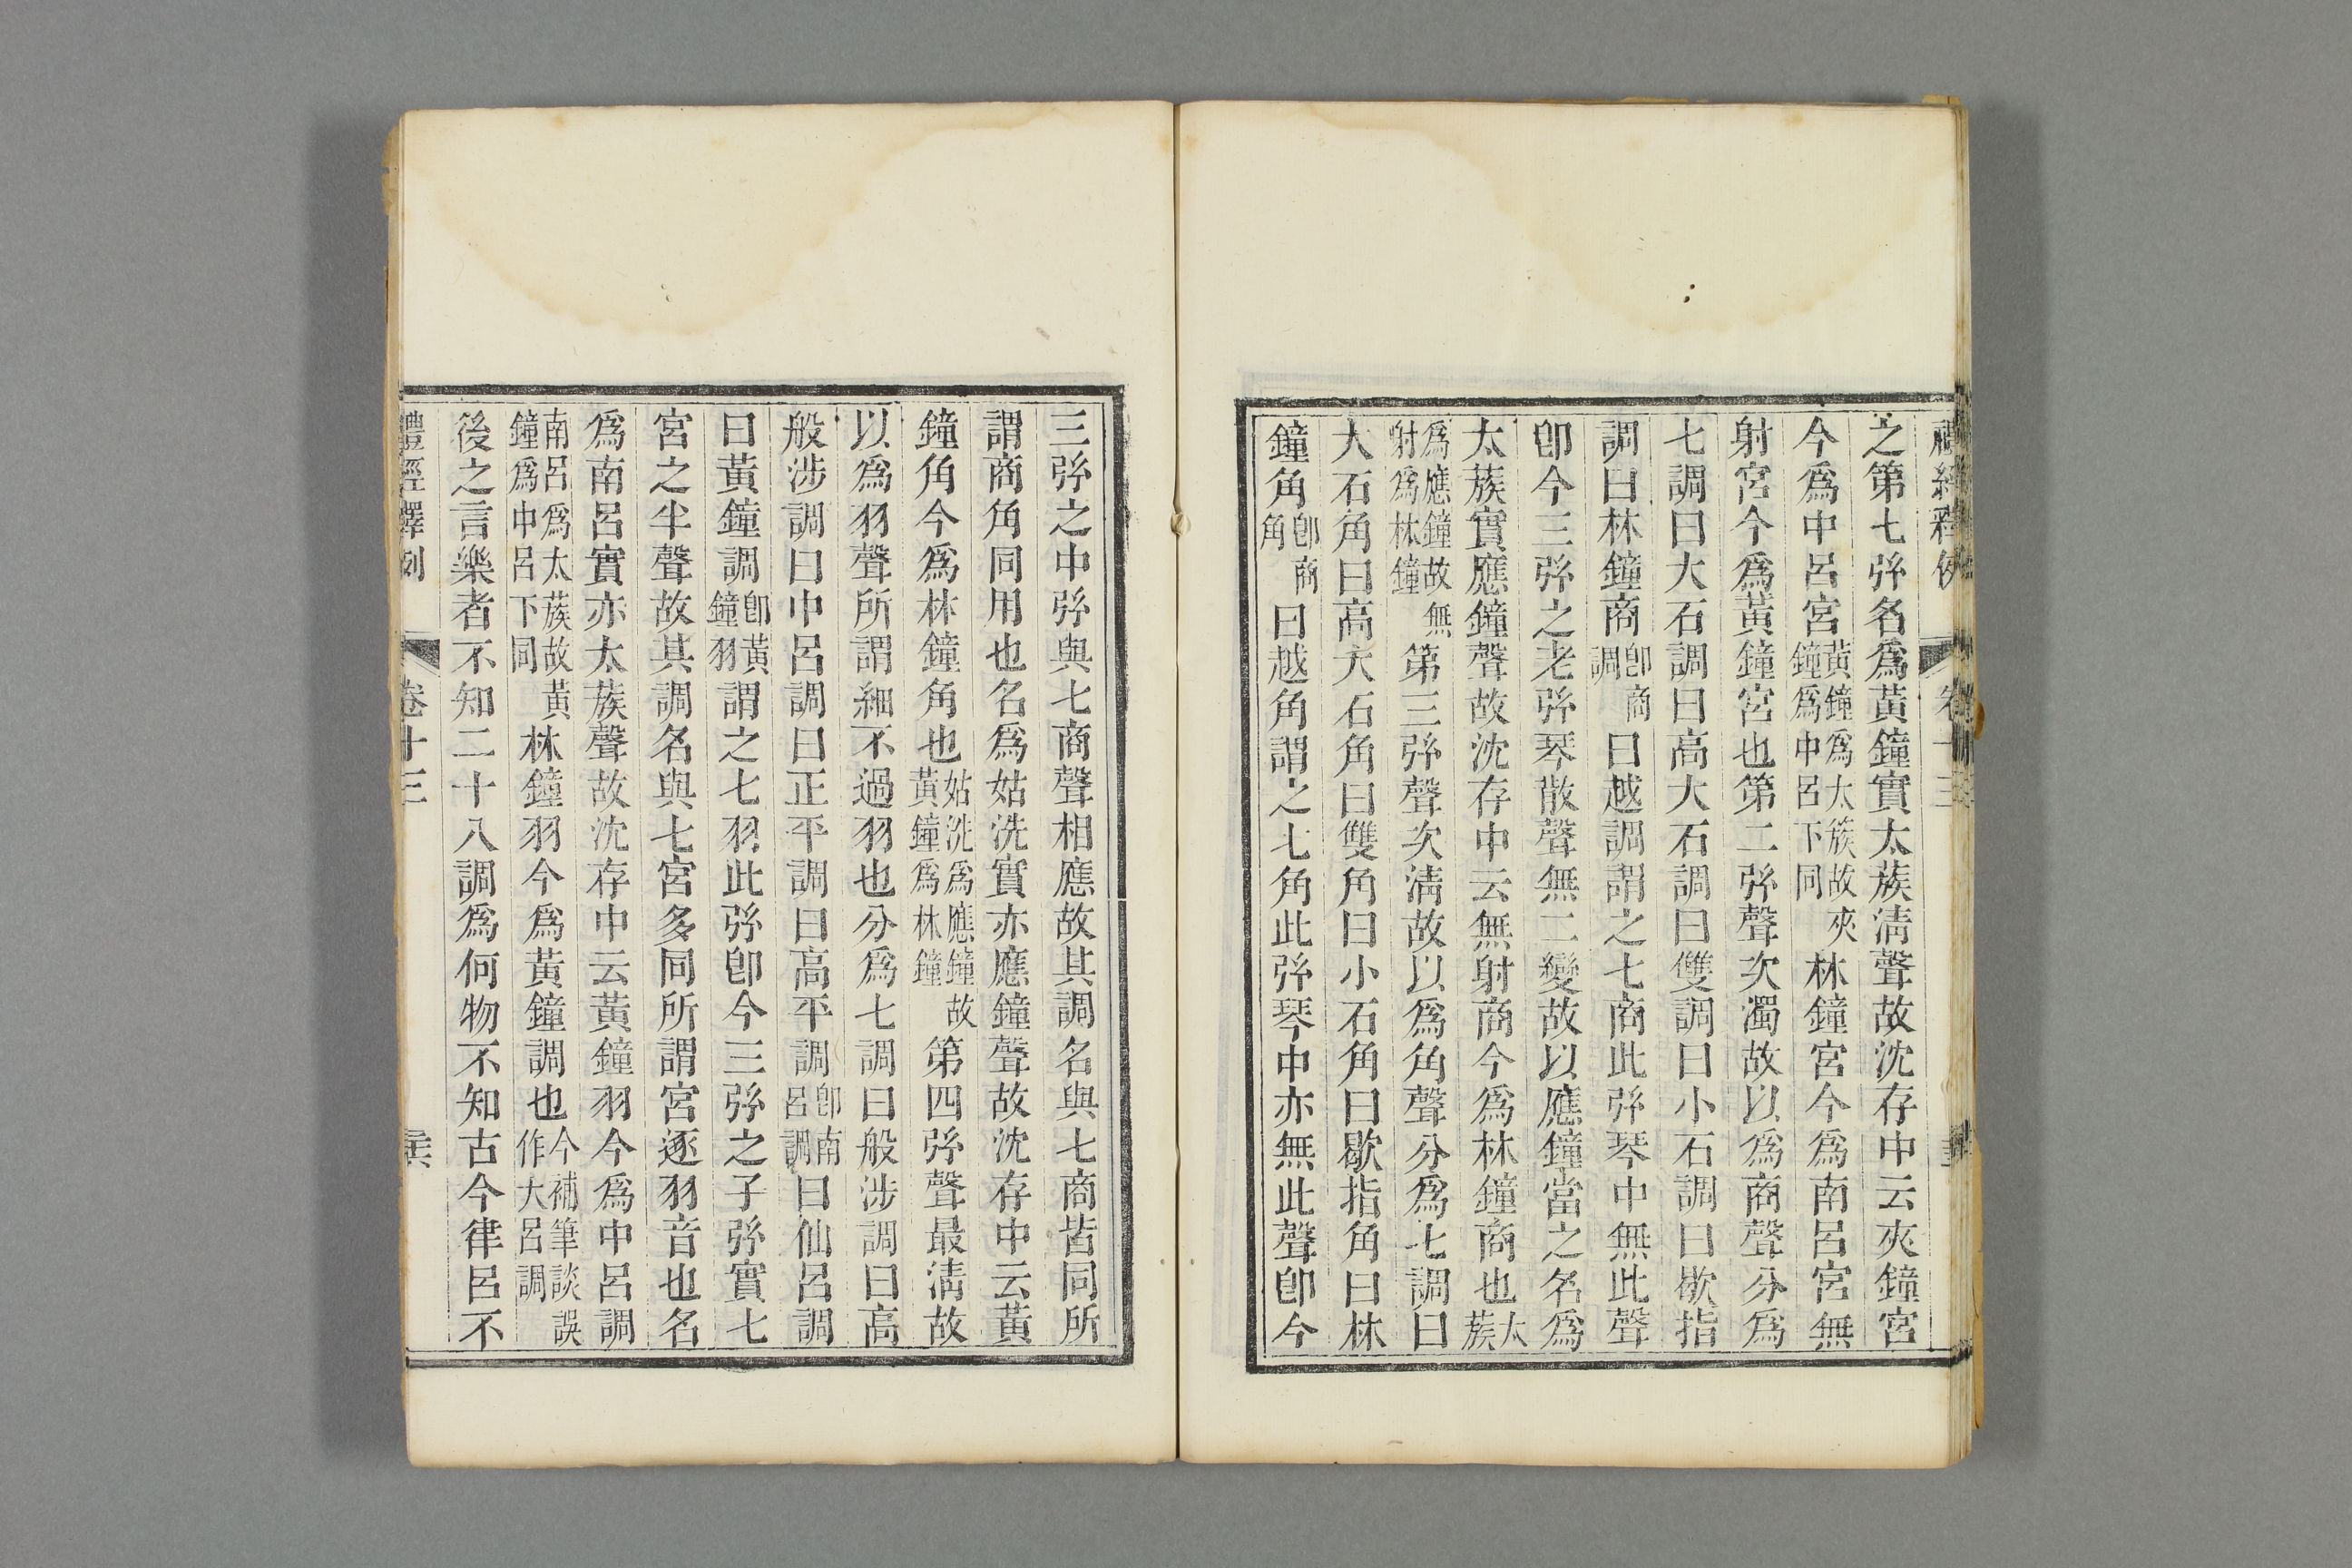 禮經釋例　卷十三
之第七弦名爲黃鐘實太蔟淸聲故沈存中云夾鐘宮
今爲中呂宮黃鐘爲太蔟故夾鐘爲中呂下同林鐘宮今爲南呂宮無
射宮今爲黃鐘宮也第二弦聲次濁故以爲商聲分爲
七調曰大石調曰高大石調曰雙調曰小石調曰歇指
調曰林鐘商卽商調曰越調謂之七商此弦琴中無此聲
卽今三弦之老弦琴散聲無二變故以應鐘當之名爲
太蔟實應鐘聲故沈存中云無射商今爲林鐘商也太蔟
爲應鐘故無射爲林鐘第三弦聲次淸故以爲角聲分爲七調曰
大石角曰高大石角曰雙角曰小石角曰歇指角曰林
鐘角卽商角曰越角謂之七角此弦琴中亦無此聲卽今
三弦之中弦與七商聲相應故其調名與七商皆同所
謂商角同用也名爲姑洗實亦應鐘聲故沈存中云黃
鐘角今爲林鐘角也姑洗爲應鐘故黃鐘爲林鐘第四弦聲最淸故
以爲羽聲所謂細不過羽也分爲七調曰般涉調曰高
般涉調曰中呂調曰正平調曰高平調卽南呂調曰仙呂調
曰黃鐘調卽黃鐘羽謂之七羽此弦卽今三弦之子弦實七
宮之半聲故其調名與七宮多同所謂宮逐羽音也名
爲南呂實亦太蔟聲故沈存中云黃鐘羽今爲中呂調
南呂爲太蔟故黃鐘爲中呂下同林鐘羽今爲黃鐘調也今補筆談誤作大呂調
後之言樂者不知二十八調爲何物不知古今律呂不
禮經釋例　卷十三